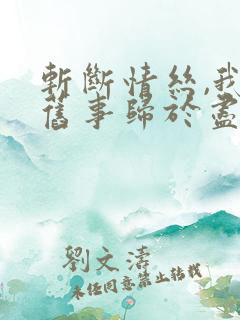 斬斷情絲,我
舊事歸於盡
劉文濤
未经同意禁止转载